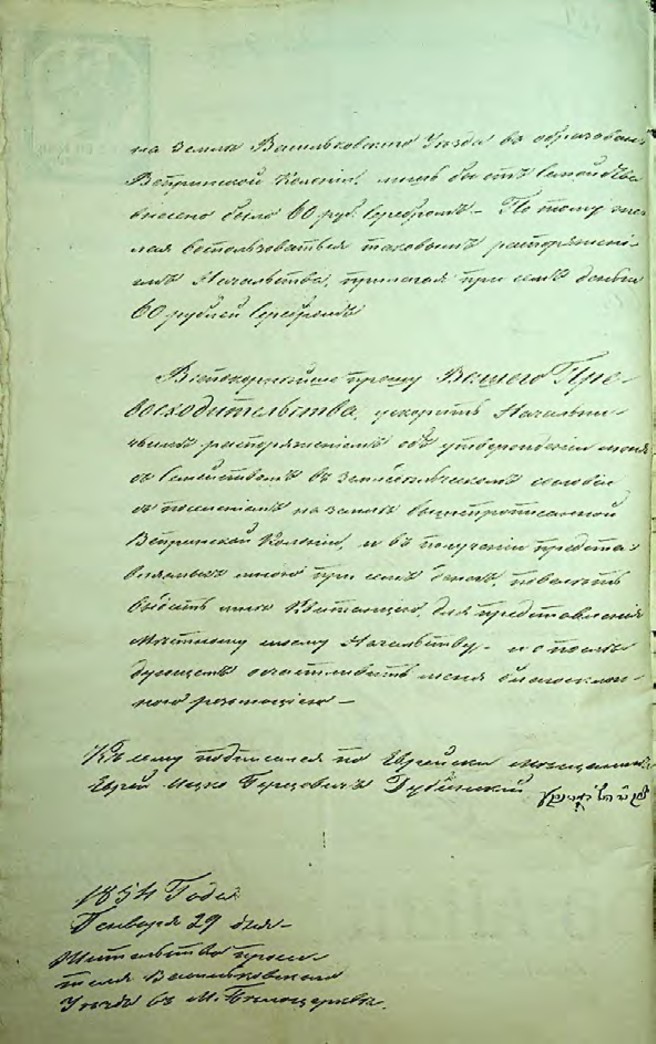 на земли Васильковскаго Уѣзда въ образован
Ветринской Колоніи, лишь бы отъ Семейства
внесено было 60 руб. Серебромъ. - По тому же
лая воспользоваться таковымъ распоряжені-
емъ Начальства, прилагая при семъ деньги
60 рублей Серебромъ
Всепокорнейше прошу Вашего Пре-
восходительства, ускорить Начальни-
ческимъ распоряженіемъ объ утвержденіи меня
съ Семействомъ въ земледельческомъ сословіи
съ поселеніемъ на землѣ вышепрописанной
Ветринской Колоніи, и въ полученіи предста-
вляемыхъ мною при семъ денегъ, повелѣть
выдать мнѣ Квитанцію, для представленія
Местному моему Начальству - и о послѣ-
дующемъ осчастливить меня благосклон-
ною резолюціею —
Къ сему подписался по Еврейски мещанинъ
Еврей Мошко Берковичъ Дубинскій
1854 Года
Генваря 29 дня -
Жительство проси-
теля Васильковскаго
Уѣзда въ М. Белоцерквѣ.